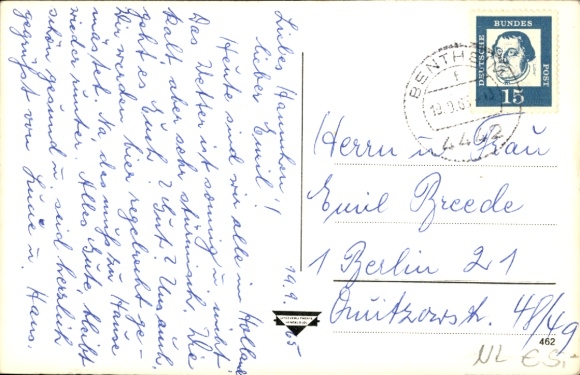 19.9.65
Liebes Hannchen!
lieber Emil!
Heute sind wir alle in Holland
Das Wetter ist sonnig u. nicht
kalt, aber sehr stürmisch. Wie
geht es Euch? Gut? Uns auch.
Wir werden hier regelrecht ge-
mästet. Na, das muß zu Hause
wieder runter. Alles Gute, bleibt
schön gesund u. seid herzlich
gegrüßt von u. Hans.
DEUTSCHE BUNDES POST
15
BENTHEIM
19.9.65
4442
Herrn u. Frau
Emil Breede
1 Berlin 21
Quitzowstr. 48/49
462
NL €5,-